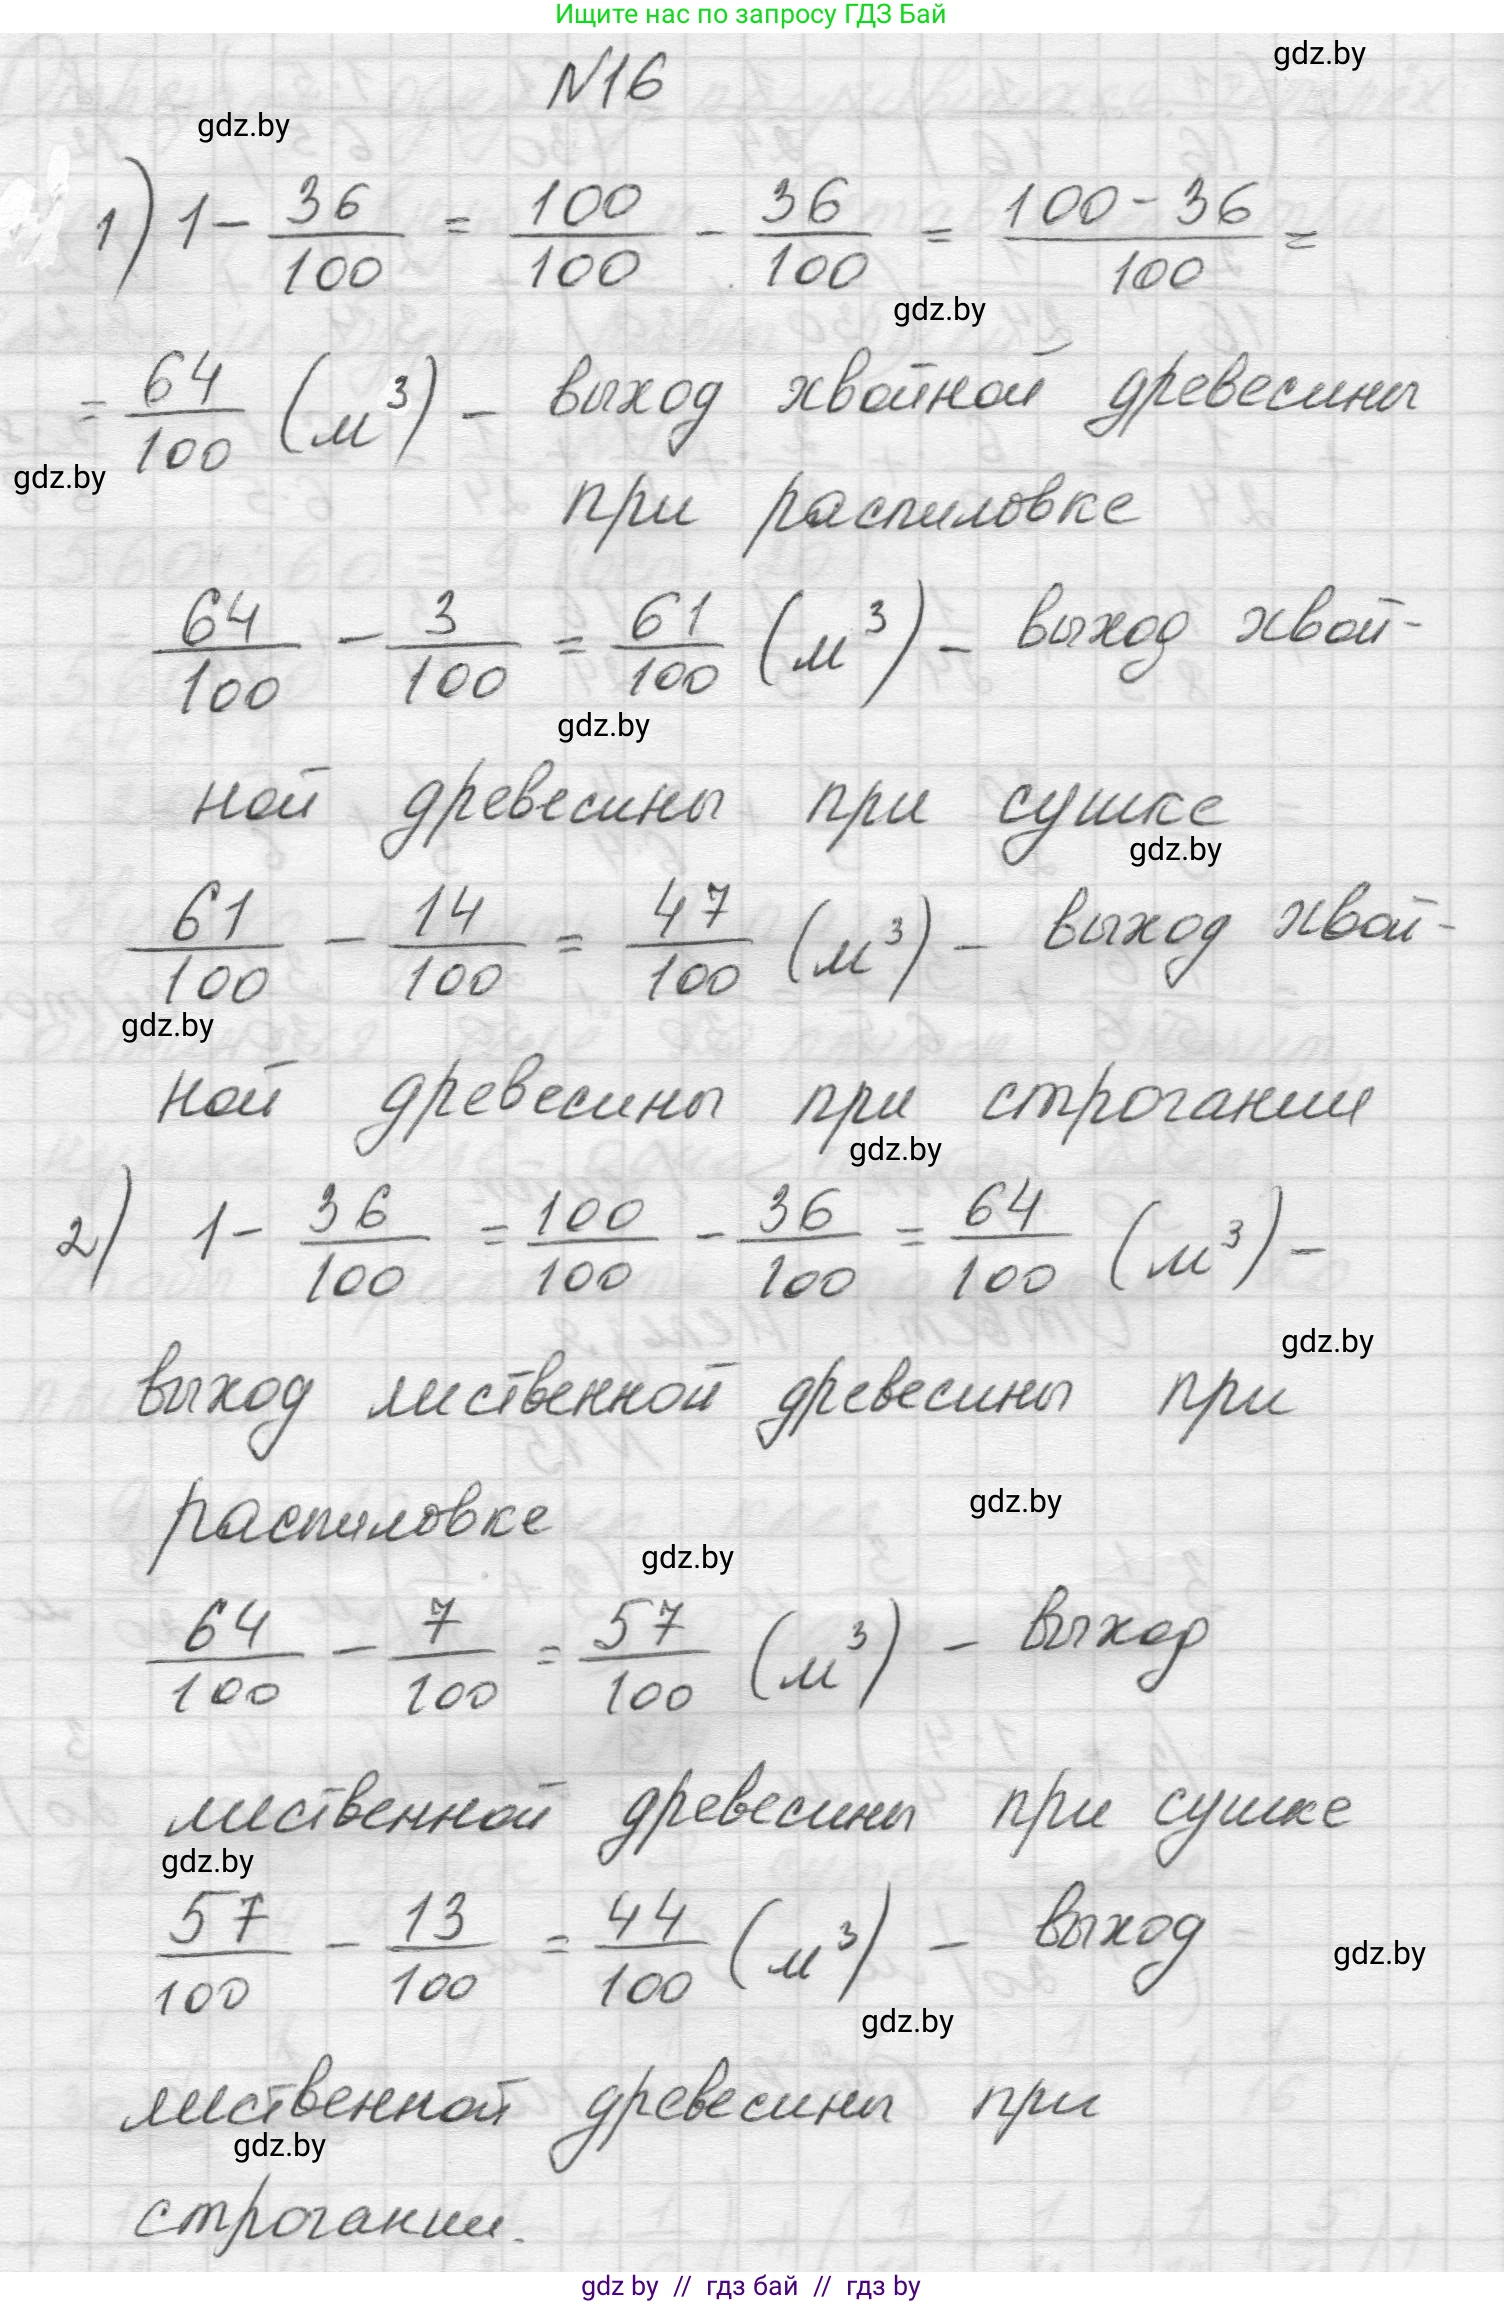 Ищите нас по запросу ГДЗ Бай
gdz.by
№16
gdz.by
1) 1 - 36/100 = 100/100 - 36/100 = (100-36)/100 =
gdz.by
= 64/100 (м³) - выход хвойной древесины
gdz.by
при распиловке
64/100 - 3/100 = 61/100 (м³) - выход хвой-
gdz.by
ной древесины при сушке
gdz.by
61/100 - 14/100 = 47/100 (м³) - выход хвой-
gdz.by
ной древесины при строгании
gdz.by
2) 1 - 36/100 = 100/100 - 36/100 = 64/100 (м³) -
gdz.by
выход лиственной древесины при
распиловке
gdz.by
gdz.by
64/100 - 7/100 = 57/100 (м³) - выход
лиственной древесины при сушке
gdz.by
57/100 - 13/100 = 44/100 (м³) - выход
gdz.by
gdz.by
лиственной древесины при
gdz.by
строгании.
gdz by // гдз бай // гдз by